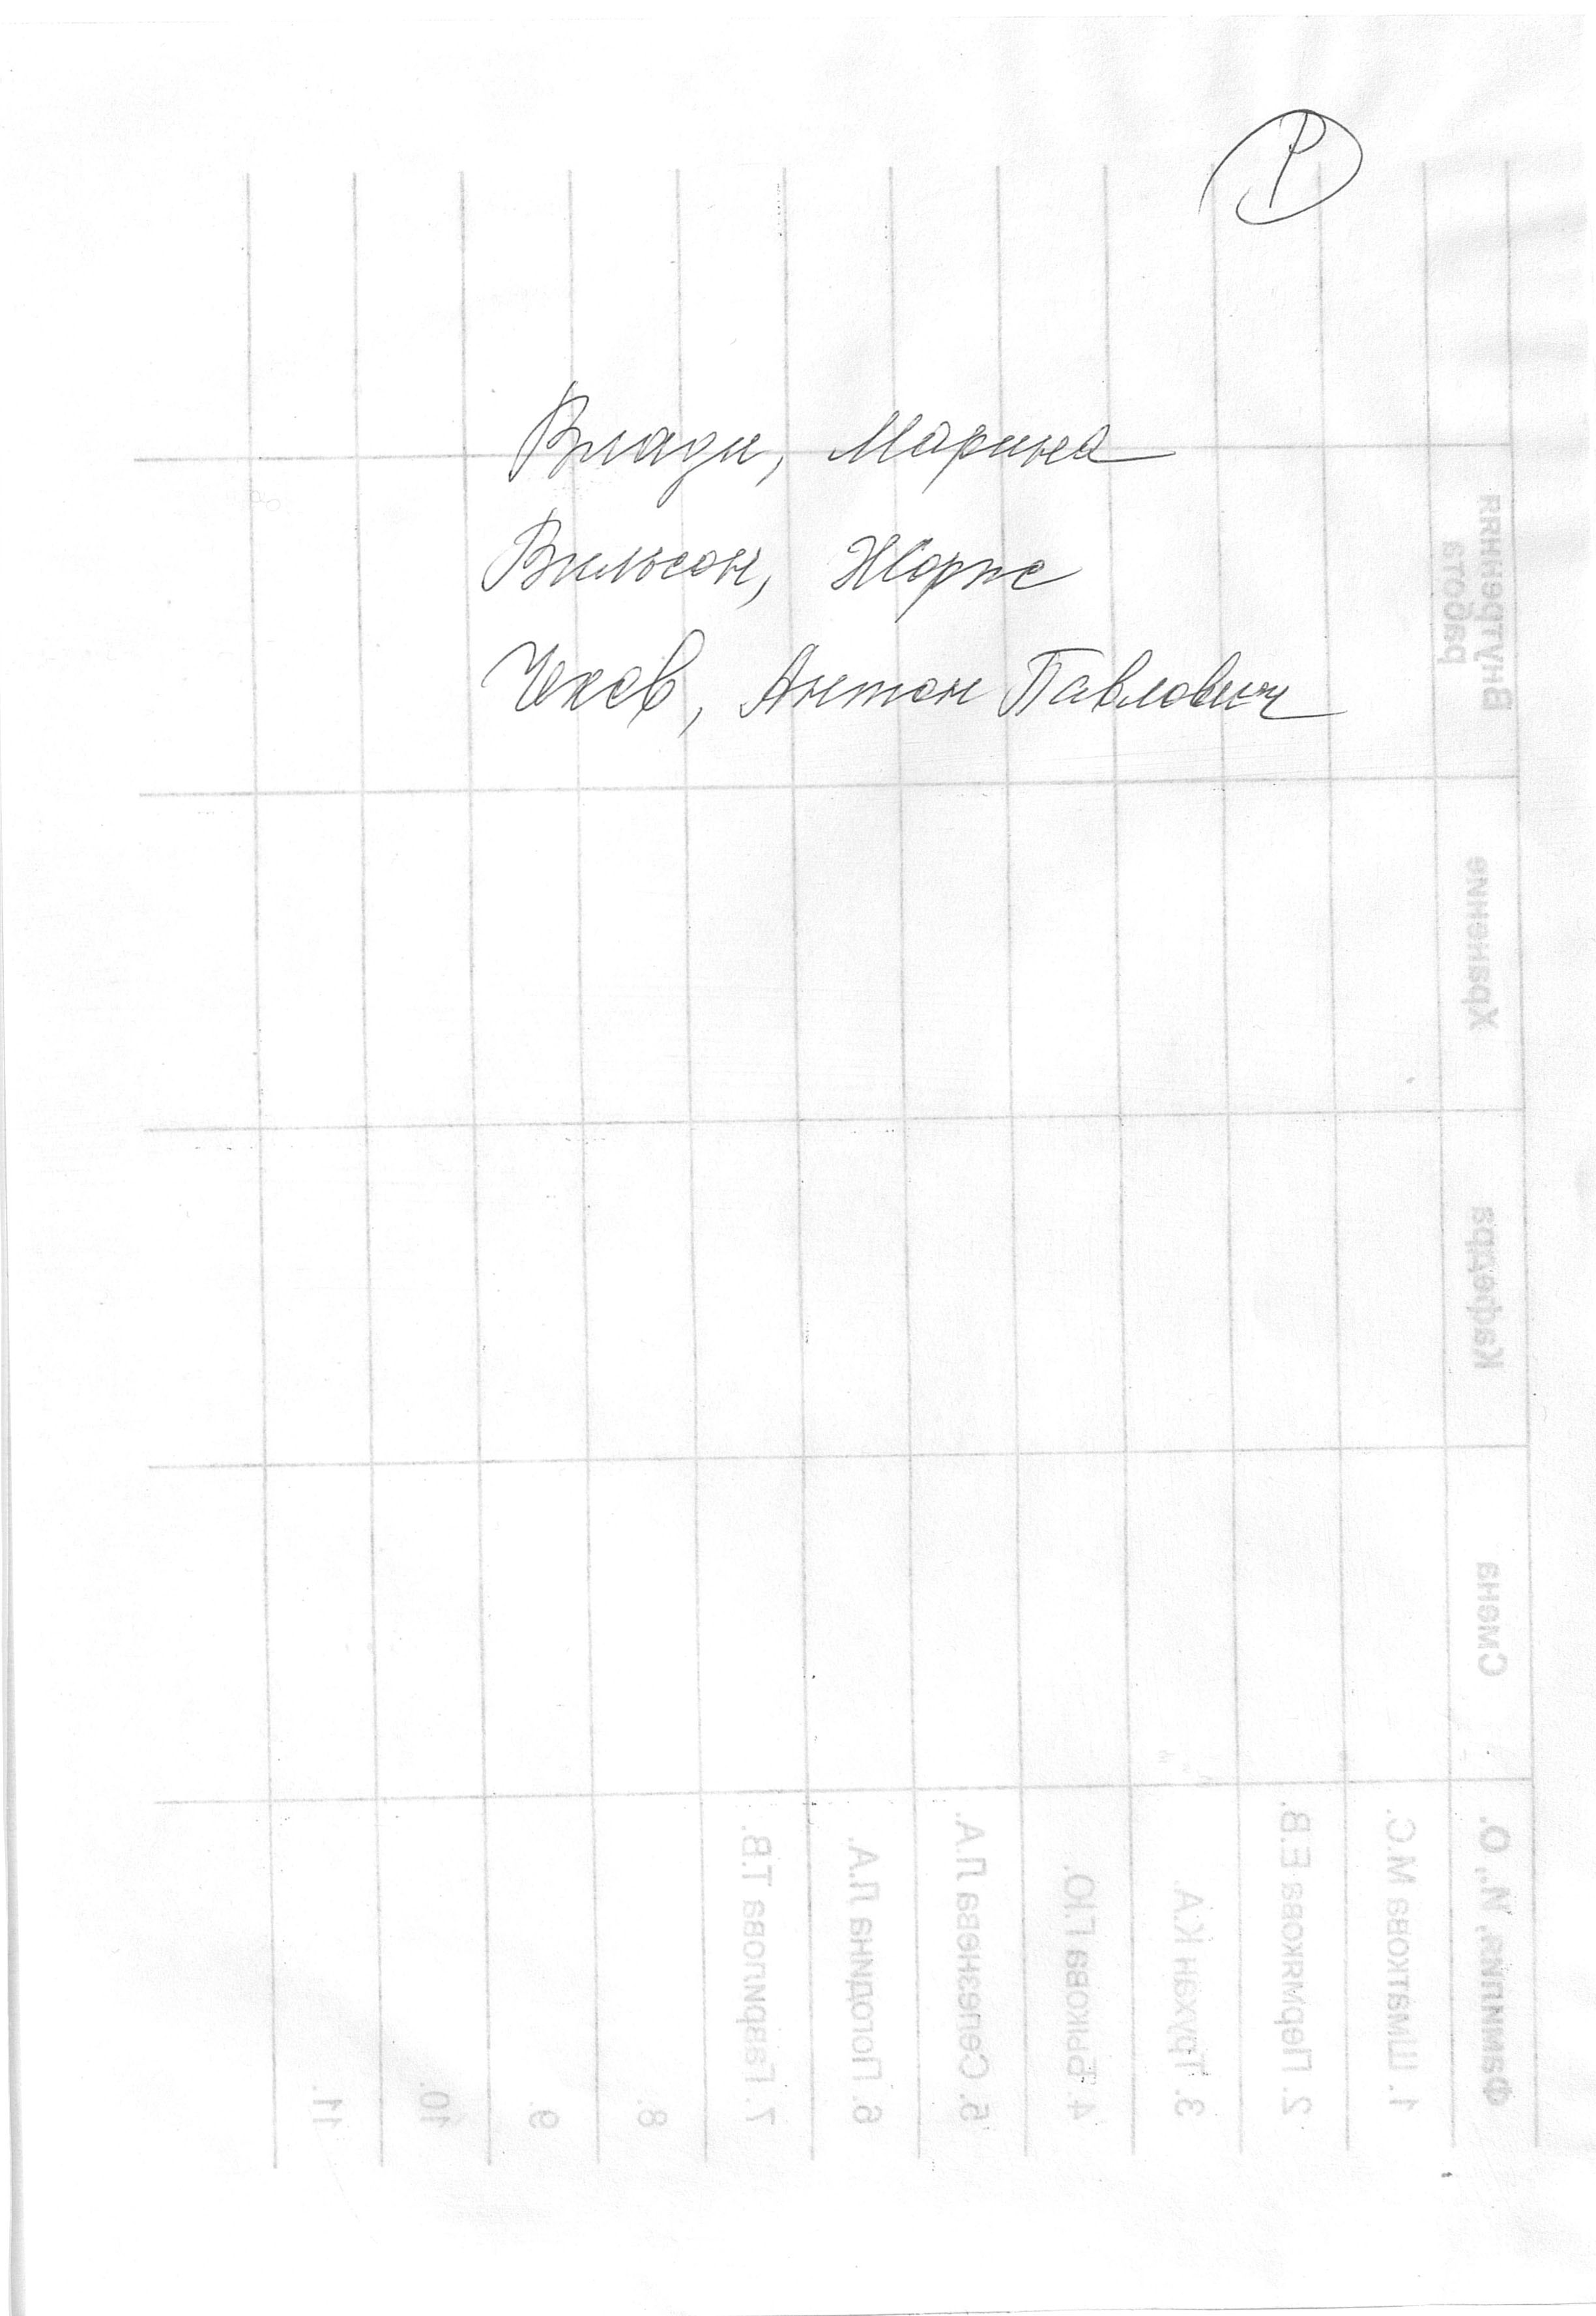 Р
Влади, Марина
Вильсон, Жорж
Чехов, Антон Павлович
Внутренняя
работа
Хранение
Кафедра
Смена
Фамилия, И., О.
1. Шматкова М.С.
2. Пермякова Е.В.
3. Трухан К.А.
4. Быкова Г.Ю.
5. Селезнева Л.А.
6. Погодина Л.А.
7. Гаврилова Т.В.
8.
9.
10.
11.